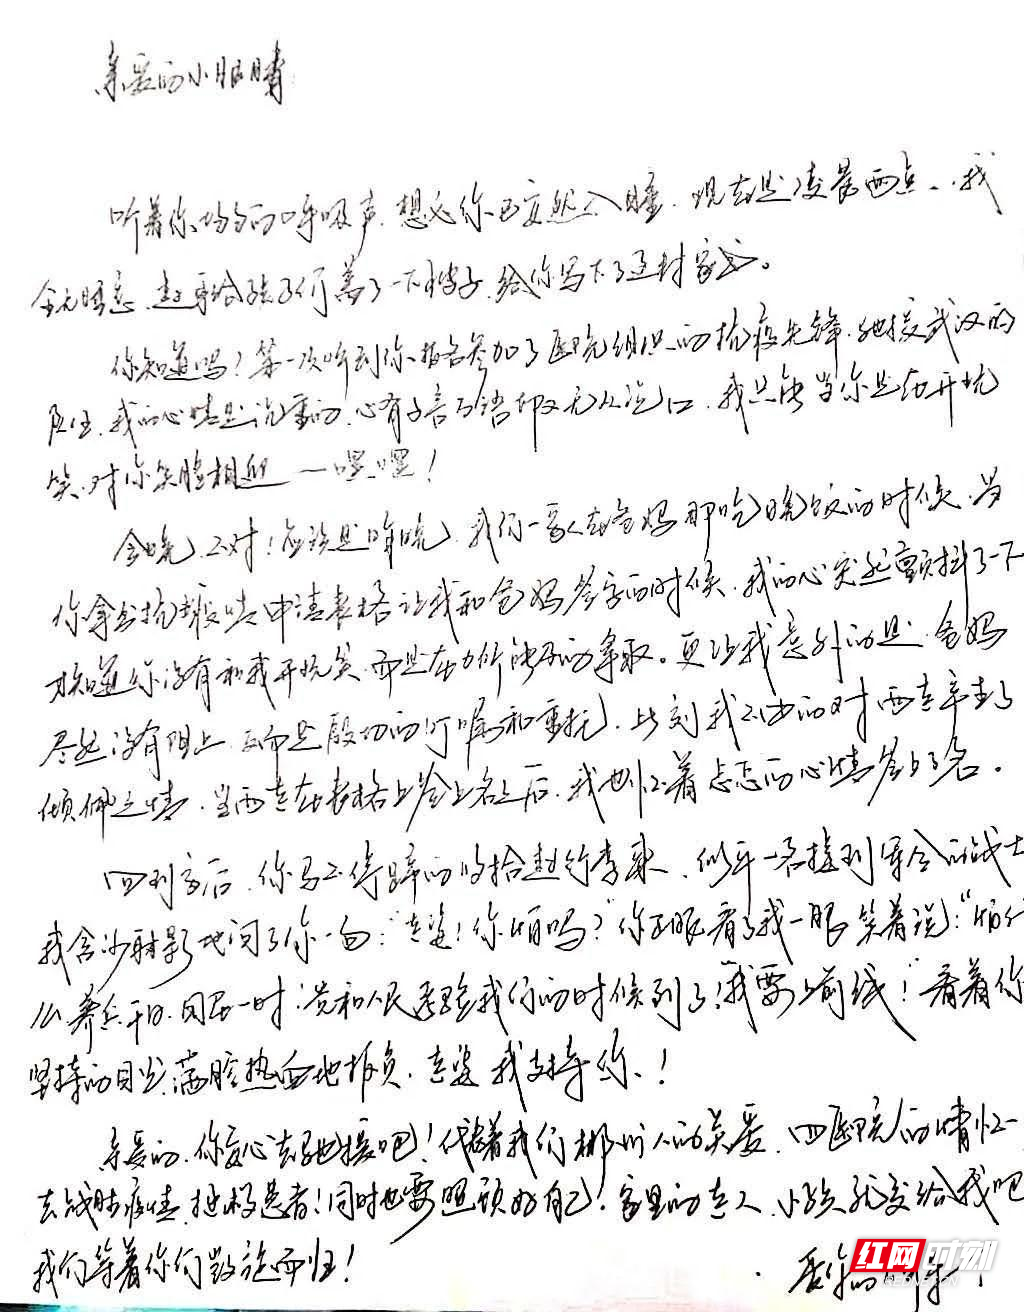 亲爱的小眼睛
听着你均匀的呼吸声，想必你已安然入睡，现在是凌晨两点，我
全无睡意，起身给孩子们盖了一下被子，给你写下了这封家书。
你知道吗？第一次听到你报名参加了医院组织的抗疫先锋，驰援武汉的
队伍，我的心情是沉重的，心有千言万语却又无从说口，我只能当你是在开玩
笑，对你笑脸相迎——嘿嘿！
今晚，不对！应该是昨晚，我们一家人在爸妈那吃晚饭的时候，当
你拿出抗疫申请表格让我和爸妈签字的时候，我的心突然颤抖了一下
才知道你没有和我开玩笑，而是在力所能及的争取。更让我意外的是，爸妈
尽然没有阻止，反而是殷切的叮嘱和重托，此刻我不由的对两老产生了
倾佩之情，当两老在表格上签上名之后，我也怀着忐忑的心情签上了名。
回到家后，你马不停蹄的收拾起行李来，似乎一名接到军令的战士
我含沙射影地问了你一句："老婆！你怕吗？"你正眼看了我一眼笑着说："怕什
么，养兵千日，用兵一时，党和人民考验我们的时候到了！我要上前线！"看着你
坚持的目光，满腔热血地抱负，老婆，我支持你！
亲爱的，你安心去驰援吧！代表着我们郴州人的关爱，四医院的情怀
去战胜疫情，拯救患者！同时也要照顾好自己，家里的老人、小孩就交给我吧
我们等着你们凯旋而归！
爱你的
红网时刻